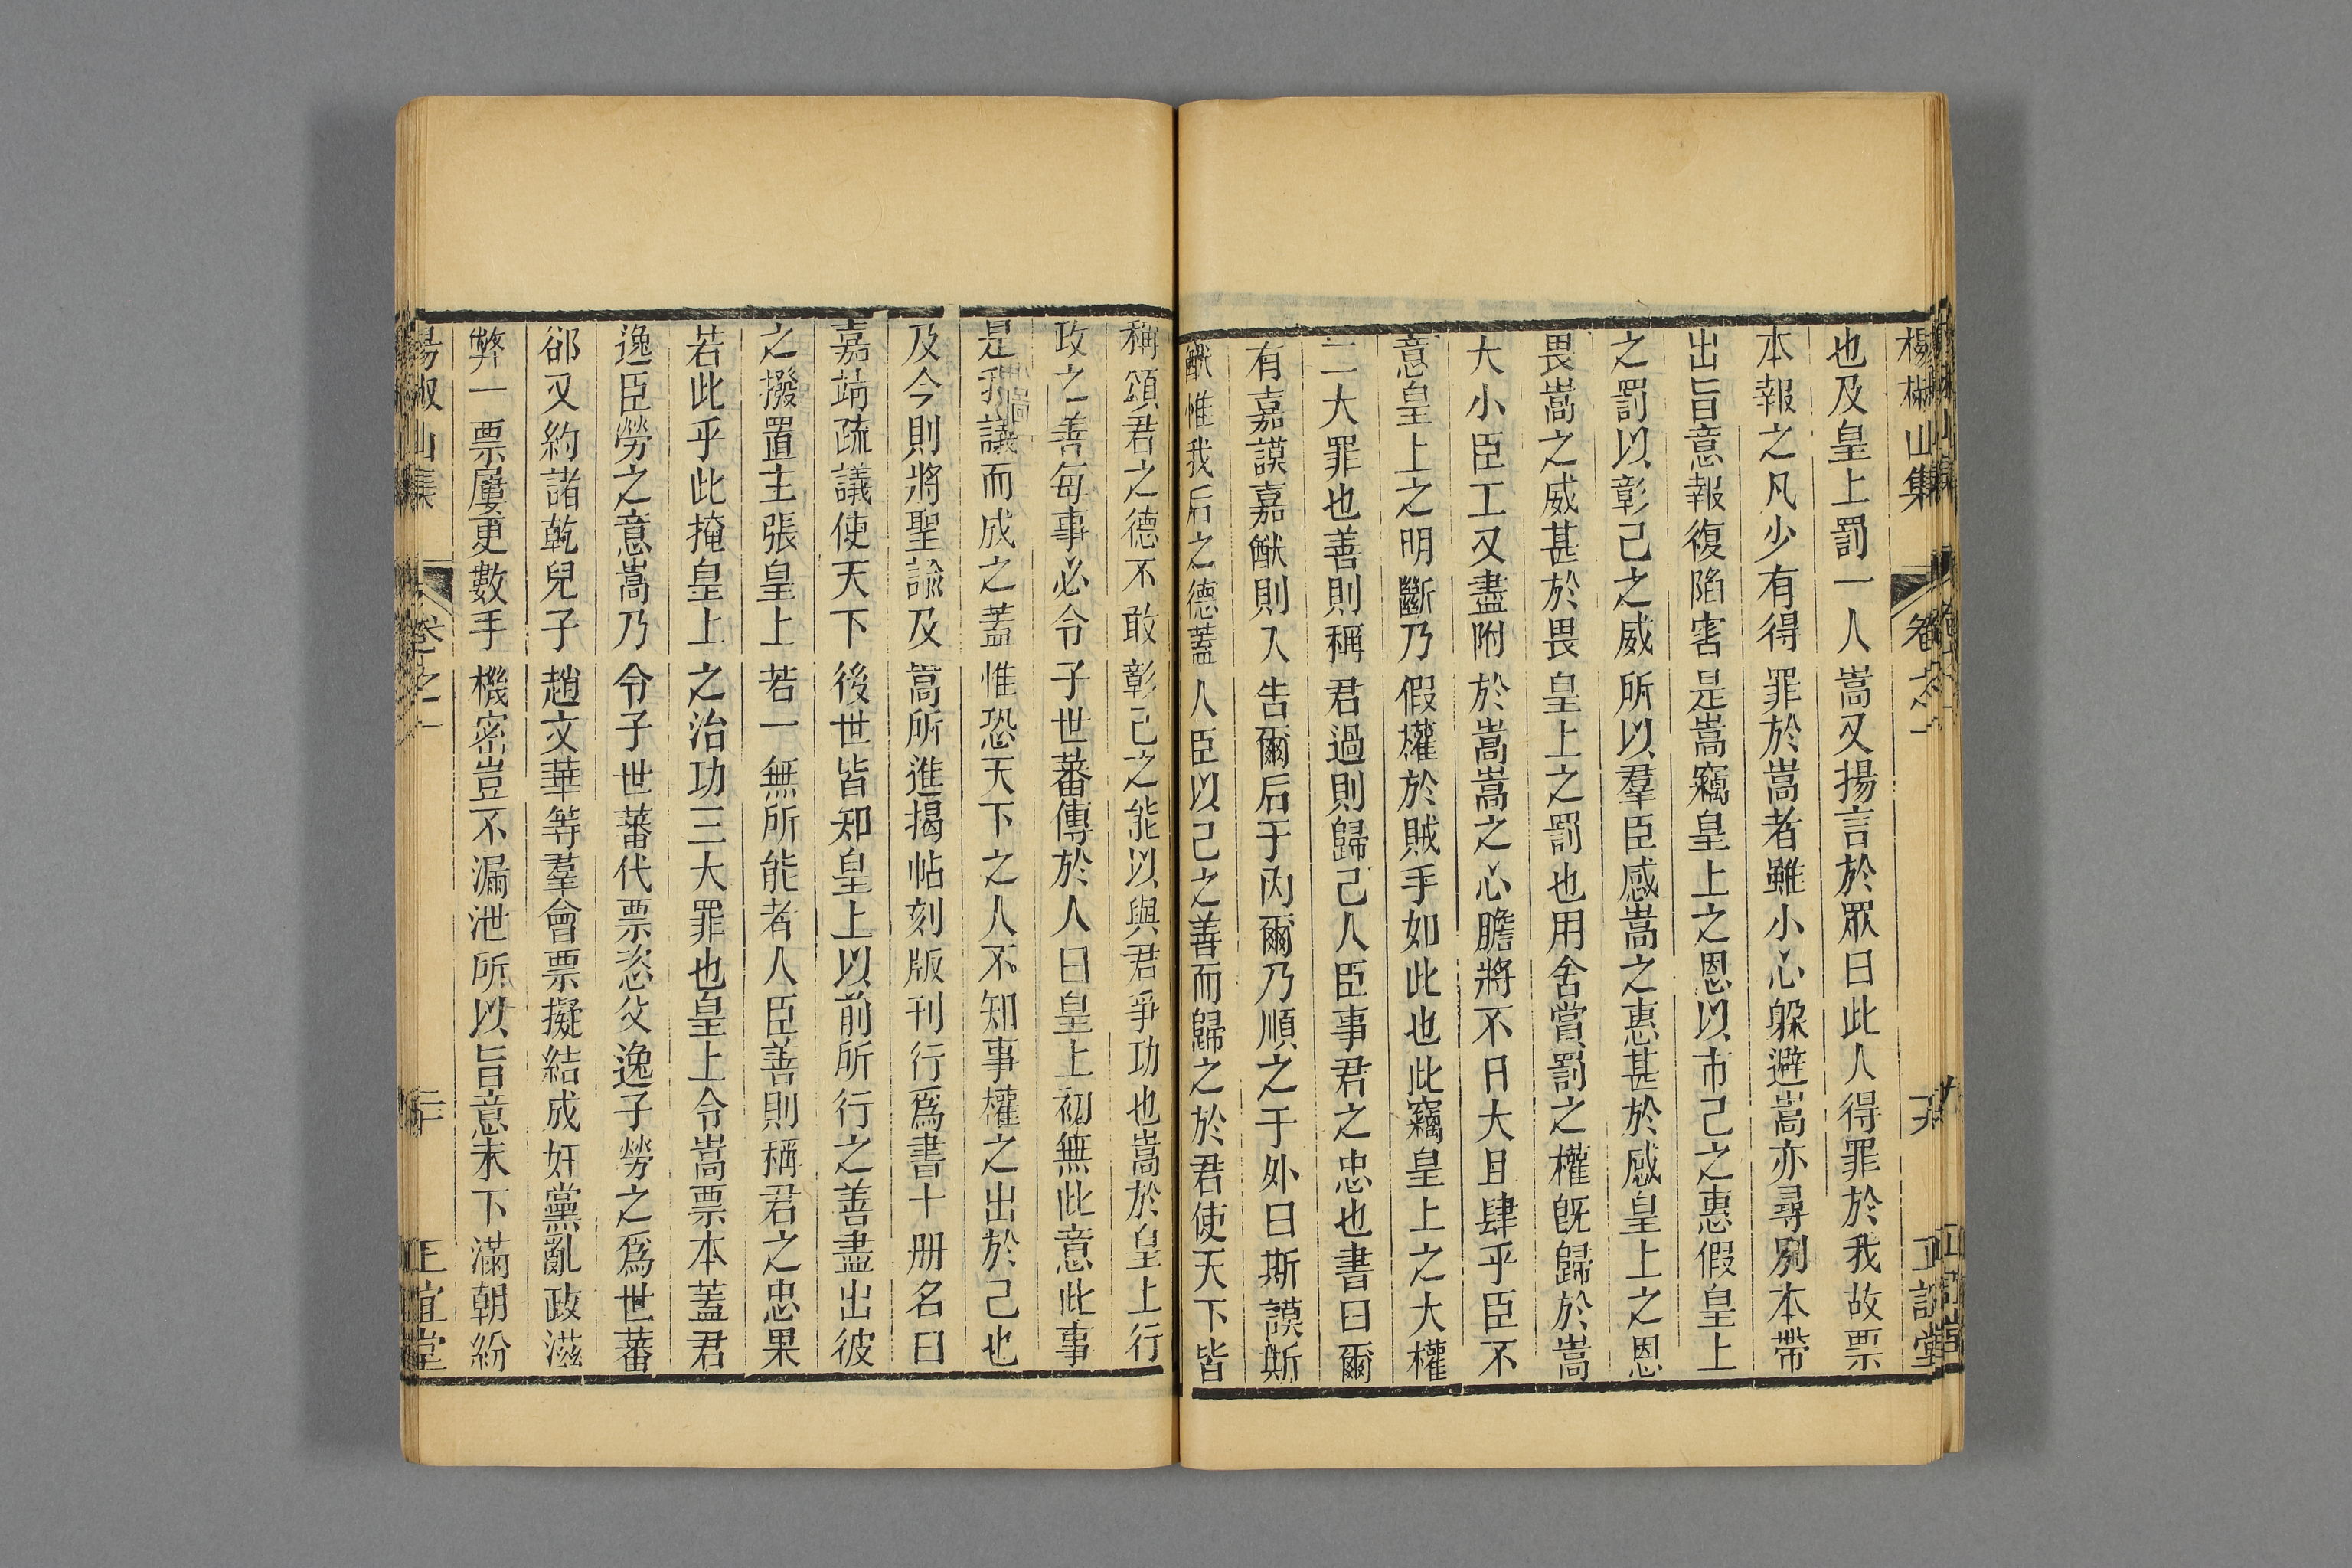 楊椒山集 卷之一 十九 正誼堂
也及皇上罰一人嵩又揚言於眾曰此人得罪於我故票
本報之凡少有得罪於嵩者雖小心躲避嵩亦尋別本帶
出旨意報復陷害是嵩竊皇上之恩以市己之惠假皇上
之罰以彰己之威所以羣臣感嵩之惠甚於感皇上之恩
畏嵩之威甚於畏皇上之罰也用舍賞罰之權旣歸於嵩
大小臣工又盡附於嵩嵩之心膽將不日大且肆乎臣不
意皇上之明斷乃假權於賊手如此也此竊皇上之大權
二大罪也善則稱君過則歸己人臣事君之忠也書曰爾
有嘉謨嘉猷則入告爾后于內爾乃順之于外曰斯謨斯
猷惟我后之德蓋人臣以己之善而歸之於君使天下皆
稱頌君之德不敢彰己之能以與君爭功也嵩於皇上行
政之善每事必令子世蕃傳於人曰皇上初無此意此事
是我議而成之蓋惟恐天下之人不知事權之出於己也
及今則將聖諭及嵩所進揭帖刻版刊行爲書十册名曰
嘉靖疏議使天下後世皆知皇上以前所行之善盡出彼
之撥置主張皇上若一無所能者人臣善則稱君之忠果
若此乎此掩皇上之治功三大罪也皇上令嵩票本蓋君
逸臣勞之意嵩乃令子世蕃代票恣父逸子勞之爲世蕃
卻又約諸乾兒子趙文華等羣會票擬結成奸黨亂政滋
弊一票屢更數手機密豈不漏泄所以旨意未下滿朝紛
楊椒山集 卷之一 二十 正誼堂